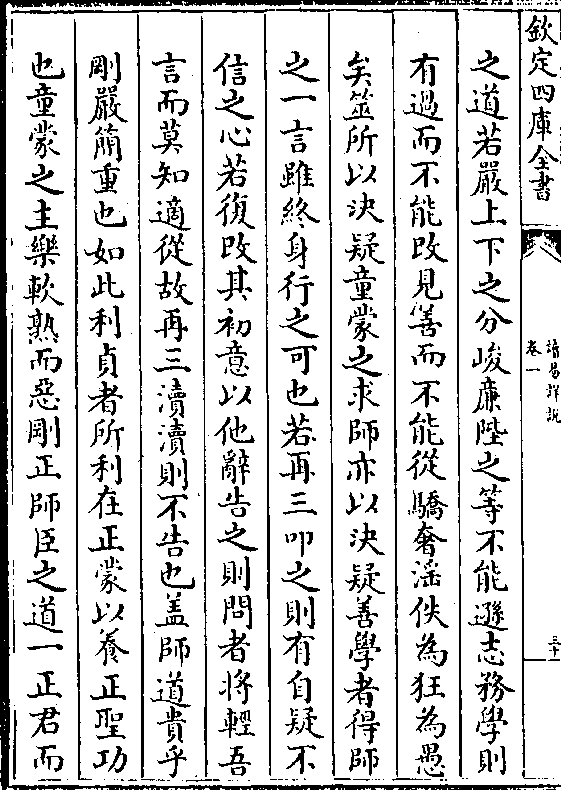 欽定四庫全書
讀易詳説
卷一
三十一
之道若嚴上下之分峻亷陛之等不能遜志務學則
有過而不能改見善而不能從驕奢滛佚為狂為愚
矣筮所以決疑童蒙之求師亦以決疑善學者得師
之一言雖終身行之可也若再三叩之則有自疑不
信之心若復改其初意以他辭告之則問者將輕吾
言而莫知適從故再三瀆瀆則不告也盖師道貴乎
剛嚴簡重也如此利貞者所利在正蒙以養正聖功
也童蒙之主樂軟熟而惡剛正師臣之道一正君而